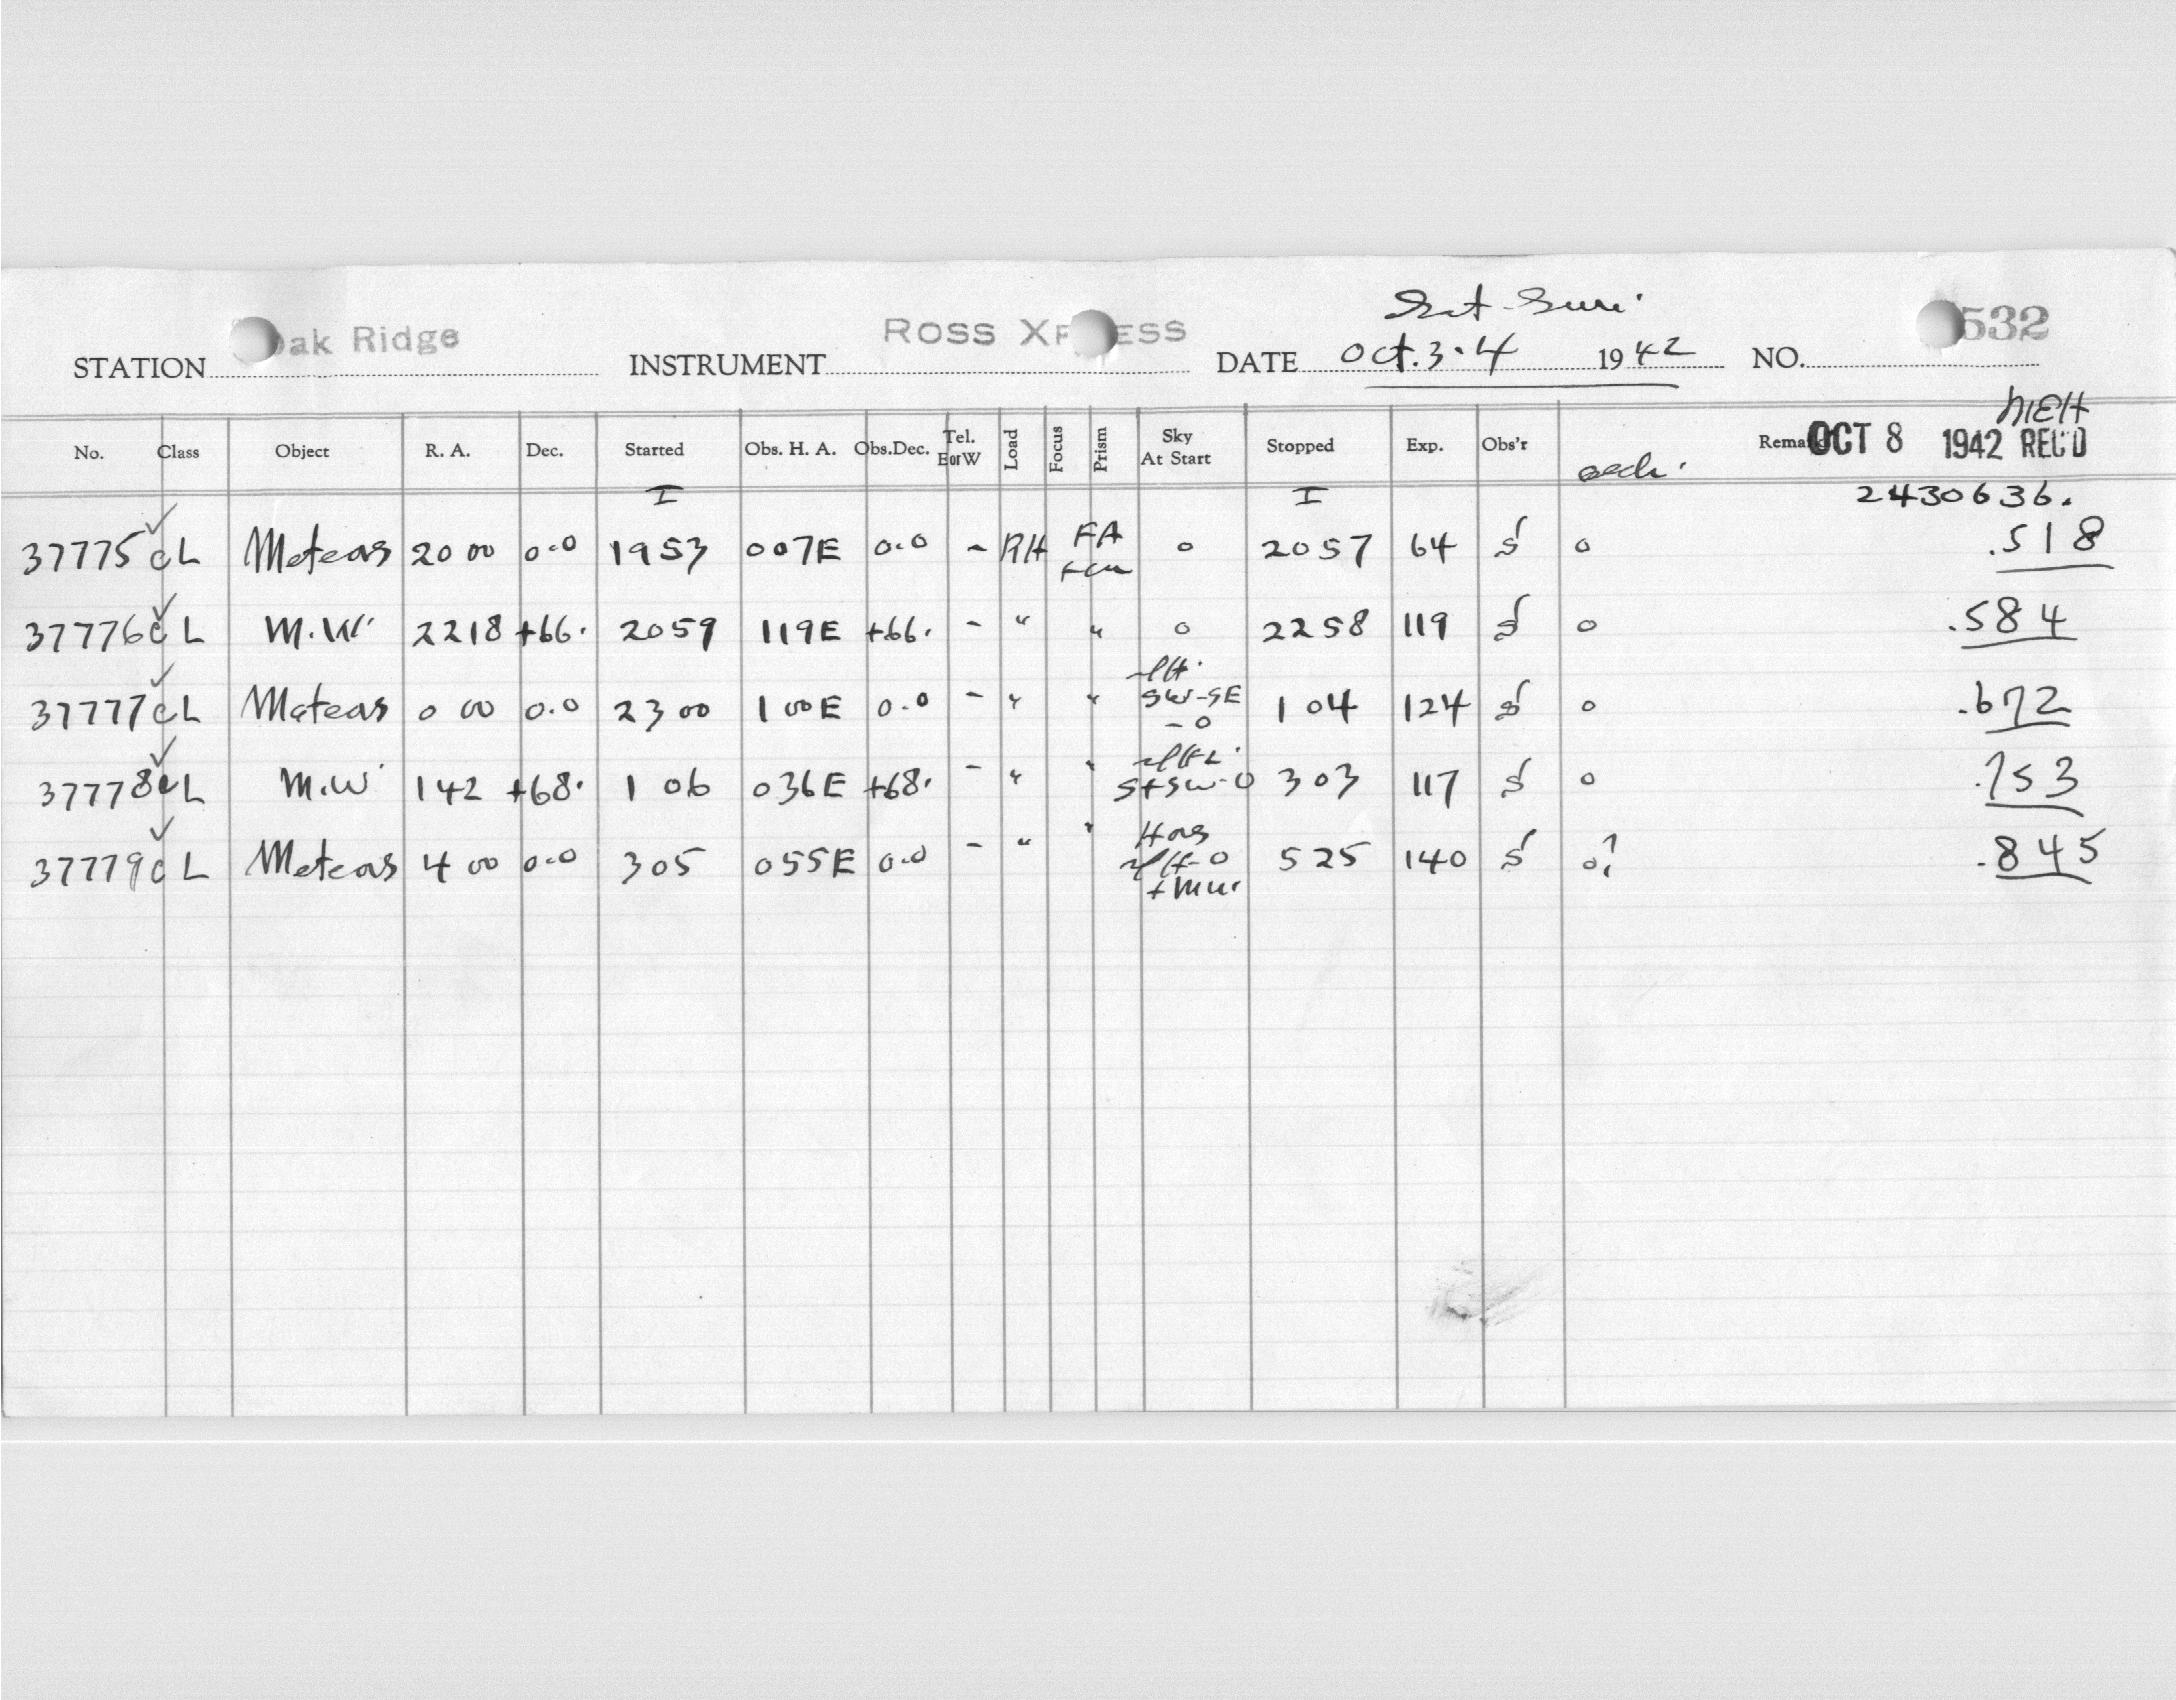 Sat-Sun.
STATION Oak Ridge INSTRUMENT ROSS XPRESS DATE Oct. 3-4 1942 NO. 532
No. Class Object R. A. Dec. Started Obs. H. A. Obs.Dec. Tel. E or W Load Focus Prism Sky At Start Stopped Exp. Obs'r Remarks OCT 8 1942 REC'D
I I 2430636.
37775 c L Meteors 20 00 0.0 1953 007E 0.0 - RH FA 0 2057 64 S 0 .518
37776 c L M.W. 2218 +66. 2059 119E +66. - " " 0 2258 119 S 0 .584
37777 c L Meteors 0 00 0.0 2300 100E 0.0 - " " SW-SE - 0 1 04 124 S 0 .672
37778 c L M.W. 1 42 +68. 1 06 036E +68. - " " S+SW-0 303 117 S 0 .753
37779 c L Meteors 4 00 0.0 305 055E 0.0 - " " 525 140 S 0? .845